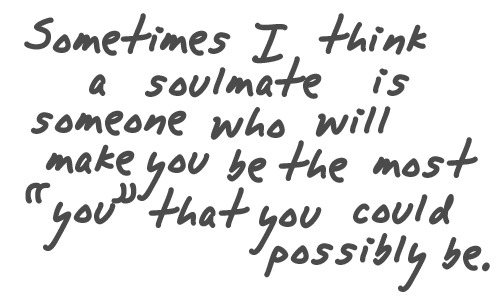 Sometimes I think
a soulmate is
someone who will
make you be the most
“you” that you could
possibly be.